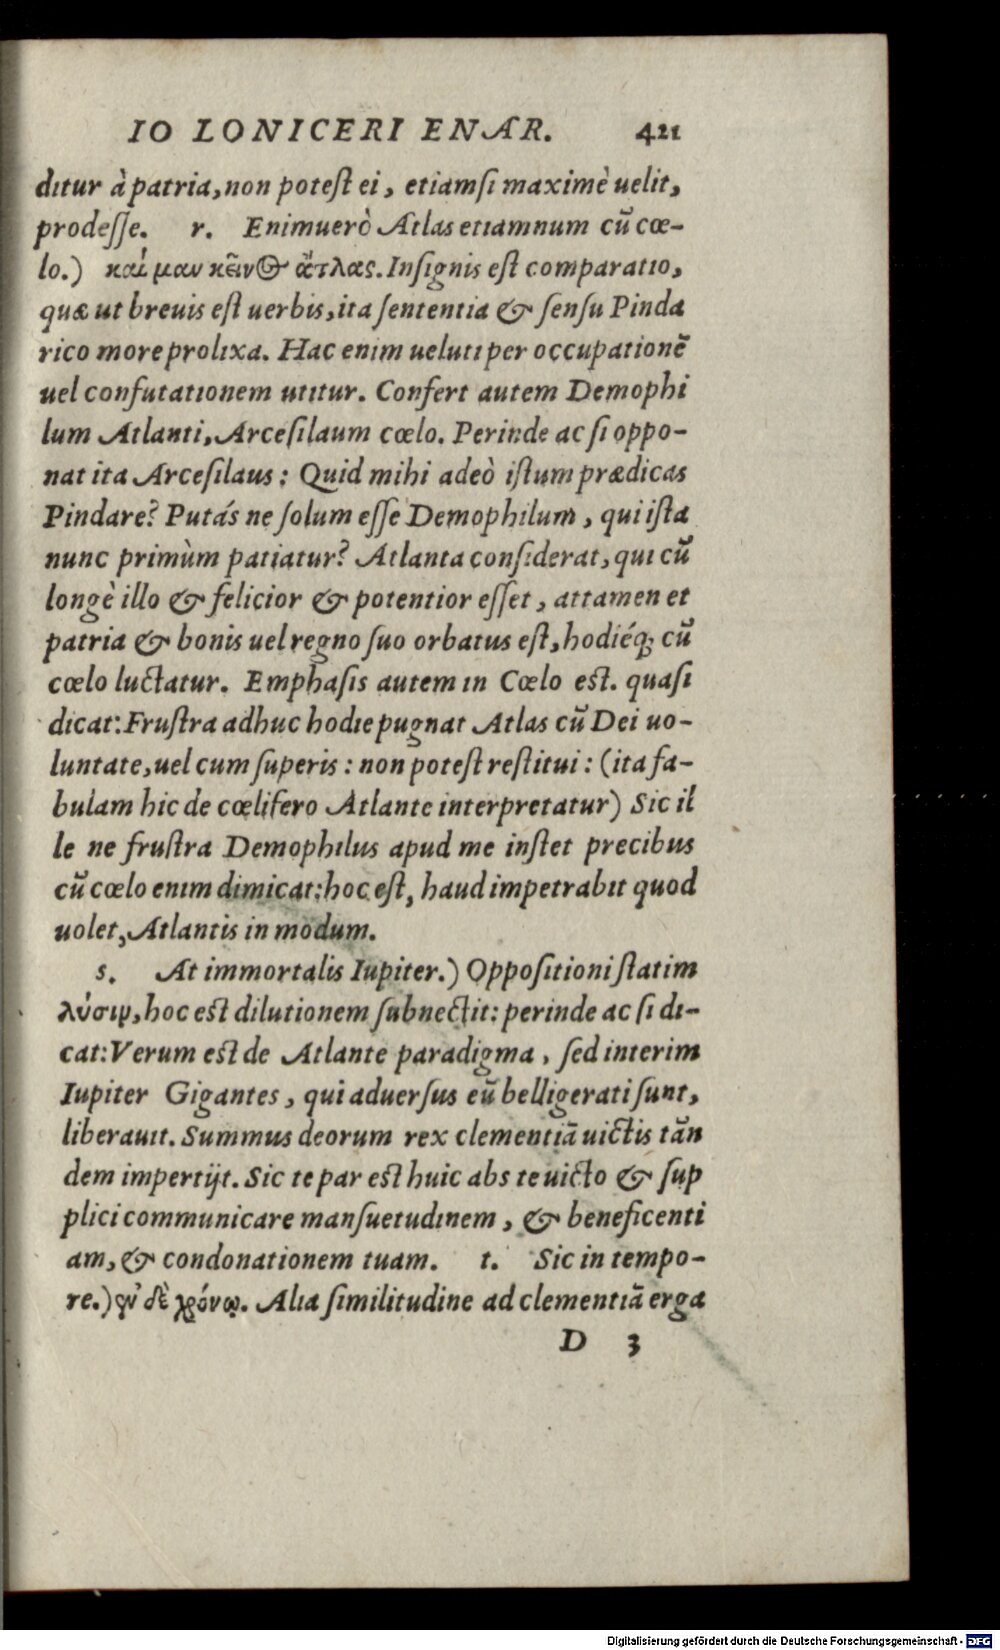 IO LONICERI ENAR. 421
ditur à patria, non potest ei, etiamsi maximè uelit,
prodesse. r. Enimuerò Atlas etiamnum cũ cœ-
lo.) καί μαν κεῖνος ἄτλας. Insignis est comparatio,
quæ ut breuis est uerbis, ita sententia & sensu Pinda
rico more prolixa. Hac enim ueluti per occupationẽ
uel confutationem utitur. Confert autem Demophi
lum Atlanti, Arcesilaum cœlo. Perinde ac si oppo-
nat ita Arcesilaus: Quid mihi adeò istum prædicas
Pindare? Putás ne solum esse Demophilum, qui ista
nunc primùm patiatur? Atlanta considerat, qui cũ
longè illo & felicior & potentior esset, attamen et
patria & bonis uel regno suo orbatus est, hodiéq; cũ
cœlo luctatur. Emphasis autem in Cœlo est. quasi
dicat: Frustra adhuc hodie pugnat Atlas cũ Dei uo-
luntate, uel cum superis: non potest restitui: (ita fa-
bulam hic de cœlifero Atlante interpretatur) Sic il
le ne frustra Demophilus apud me instet precibus
cũ cœlo enim dimicat: hoc est, haud impetrabit quod
uolet, Atlantis in modum.
s. At immortalis Iupiter.) Oppositioni statim
λύσιν, hoc est dilutionem subnectit: perinde ac si di-
cat: Verum est de Atlante paradigma, sed interim
Iupiter Gigantes, qui aduersus eũ belligerati sunt,
liberauit. Summus deorum rex clementiã uictis tãn
dem impertijt. Sic te par est huic abs te uicto & sup
plici communicare mansuetudinem, & beneficenti
am, & condonationem tuam. t. Sic in tempo-
re.) ἐν δὲ χρόνῳ. Alia similitudine ad clementiã erga
D 3
Digitalisierung gefördert durch die Deutsche Forschungsgemeinschaft - DFG